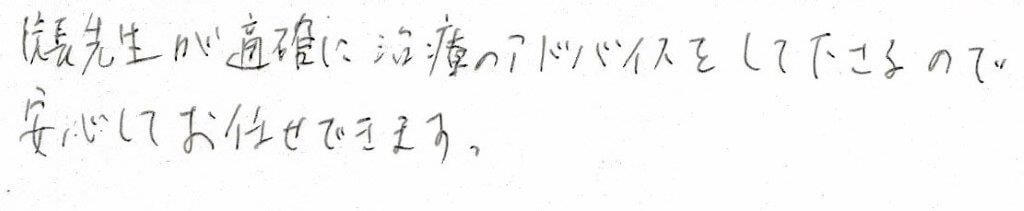 院長先生が適確に治療のアドバイスをして下さるので
安心してお任せできます。